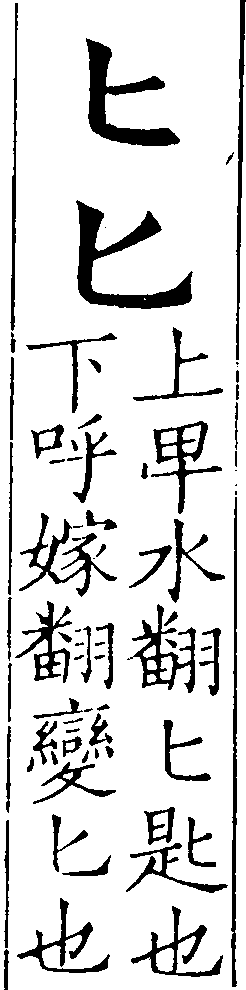 匕𠤎
上卑水翻匕匙也
下呼嫁翻變𠤎也